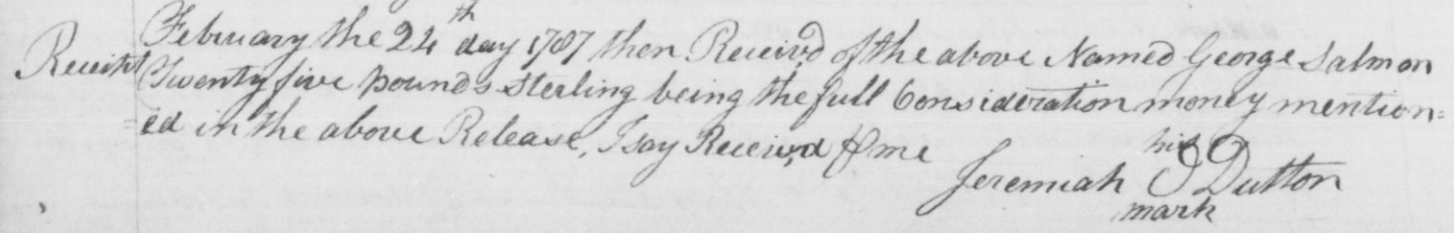 Receipt
February the 24th day 1787 then Receiv'd of the above Named George Salmon
Twenty five pounds sterling being the full Consideration money mention=
=ed in the above Release, I say Receiv'd ⅌ me
his
Jeremiah J Dutton
mark